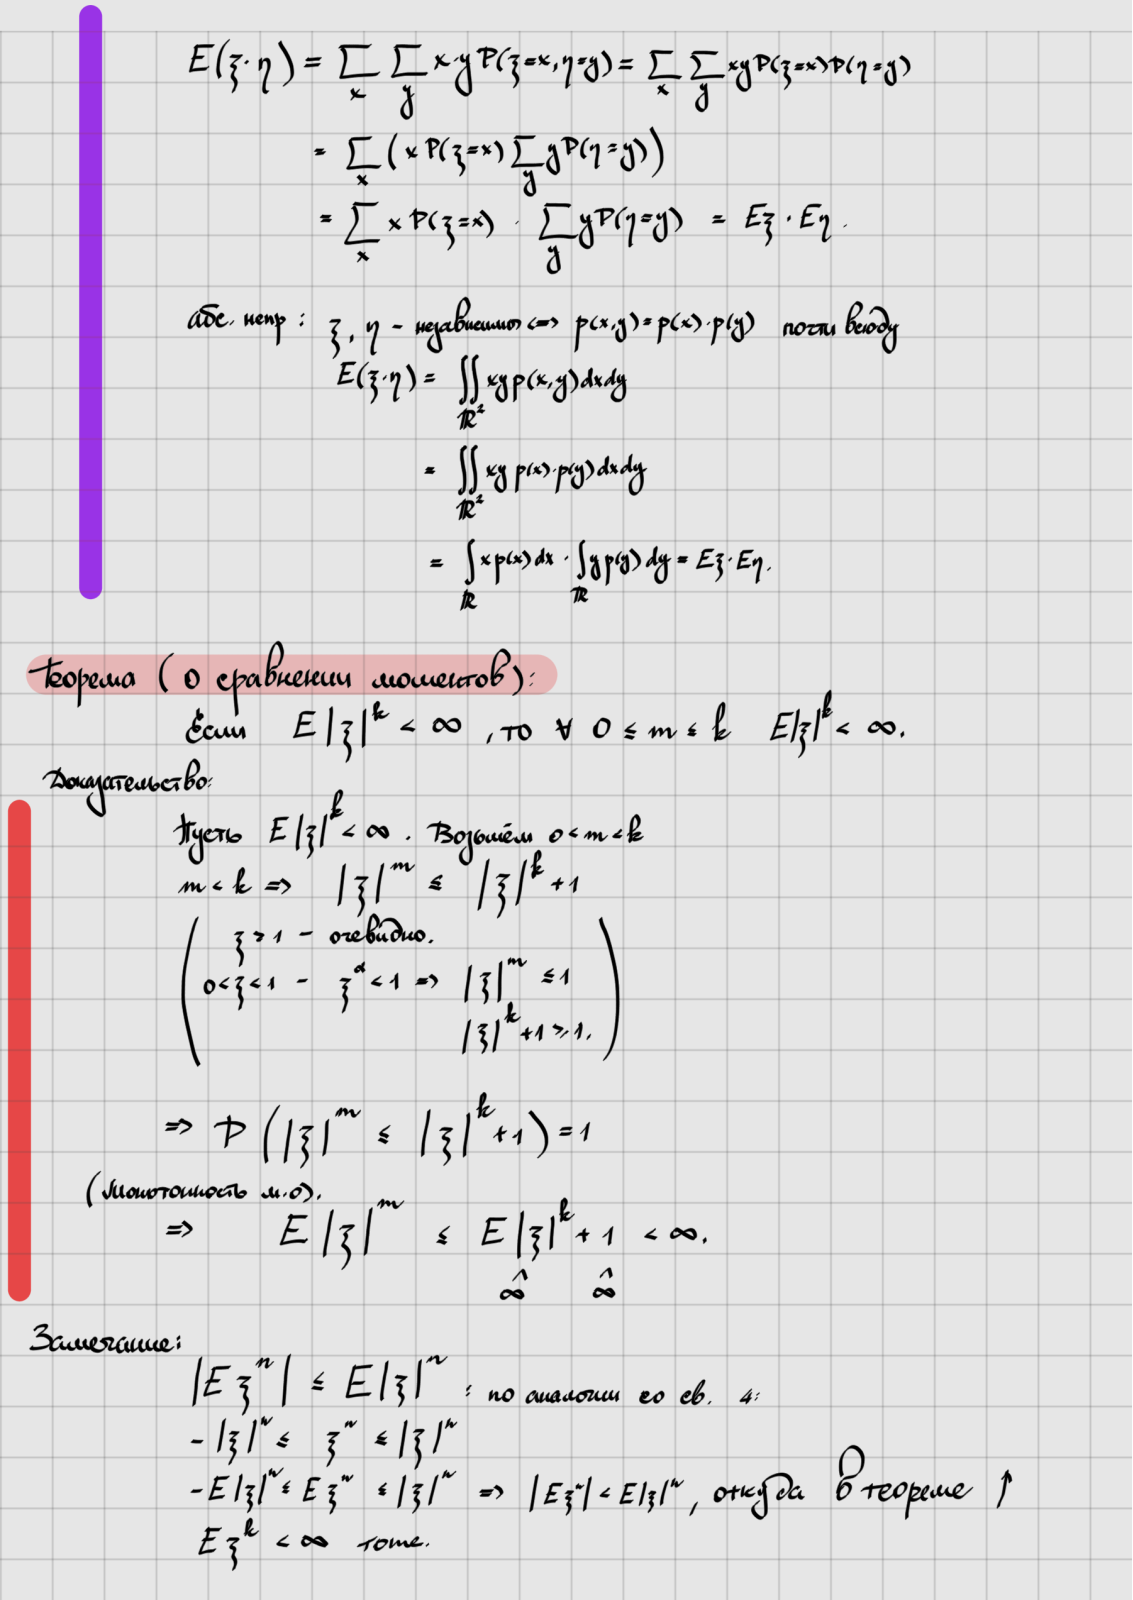 E(ξ·η) = ∑_x ∑_y x·y P(ξ=x, η=y) = ∑_x ∑_y xy P(ξ=x) P(η=y)
= ∑_x (x P(ξ=x) ∑_y y P(η=y))
= ∑_x x P(ξ=x) · ∑_y y P(η=y) = Eξ · Eη.
абс. непр: ξ, η - независимы <=> p(x,y)=p(x)·p(y) почти всюду
E(ξ·η) = ∬_{ℝ²} xy p(x,y) dx dy
= ∬_{ℝ²} xy p(x)·p(y) dx dy
= ∫_ℝ x p(x) dx · ∫_ℝ y p(y) dy = Eξ·Eη.
Теорема (о сравнении моментов):
Если E|ξ|^k < ∞, то ∀ 0 ≤ m ≤ k E|ξ|^k < ∞.
Доказательство:
Пусть E|ξ|^k < ∞. Возьмём 0 < m < k
m < k => |ξ|^m ≤ |ξ|^k + 1
( ξ > 1 - очевидно.
0<ξ<1 - ξ^α < 1 => |ξ|^m ≤ 1
|ξ|^k + 1 ≥ 1. )
=> P(|ξ|^m ≤ |ξ|^k + 1) = 1
(монотонность м.о).
=> E|ξ|^m ≤ E|ξ|^k + 1 < ∞.
^ ^
∞ ∞
Замечание:
|Eξ^n| ≤ E|ξ|^n : по аналогии со св. 4:
-|ξ|^n ≤ ξ^n ≤ |ξ|^n
-E|ξ|^n ≤ Eξ^n ≤ |ξ|^n => |Eξ^n| < E|ξ|^n, откуда в теореме ↑
Eξ^k < ∞ тоже.